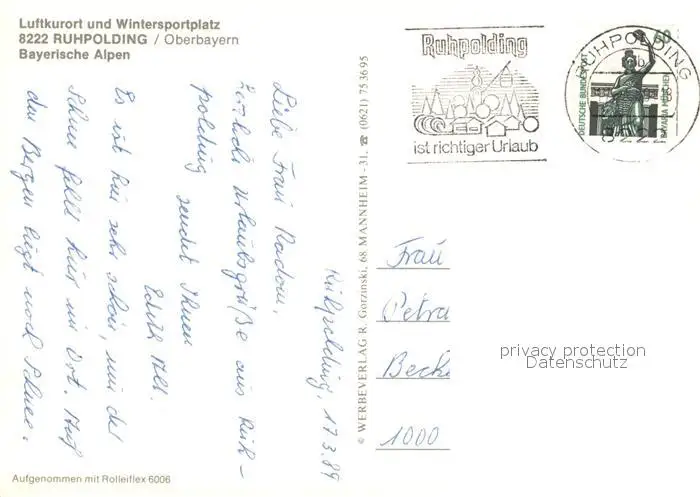 Luftkurort und Wintersportplatz
8222 RUHPOLDING / Oberbayern
Bayerische Alpen
Ruhpolding
ist richtiger Urlaub
RUHPOLDING
8222
60
DEUTSCHE BUNDESPOST
BAVARIA MÜNCHEN
© WERBEVERLAG R. Gorzinski, 68 MANNHEIM-31. ☎ (0621) 753695
Ruhpolding, 17.3.89
Liebe Frau
herzliche Urlaubsgrüße aus Ruh-
polding sendet Ihnen
Edith
Es ist hier sehr schön, nur der
Schnee fehlt hier im Ort. Auf
den Bergen liegt noch Schnee.
Frau
Petra
Beck
1000
privacy protection
Datenschutz
Aufgenommen mit Rolleiflex 6006